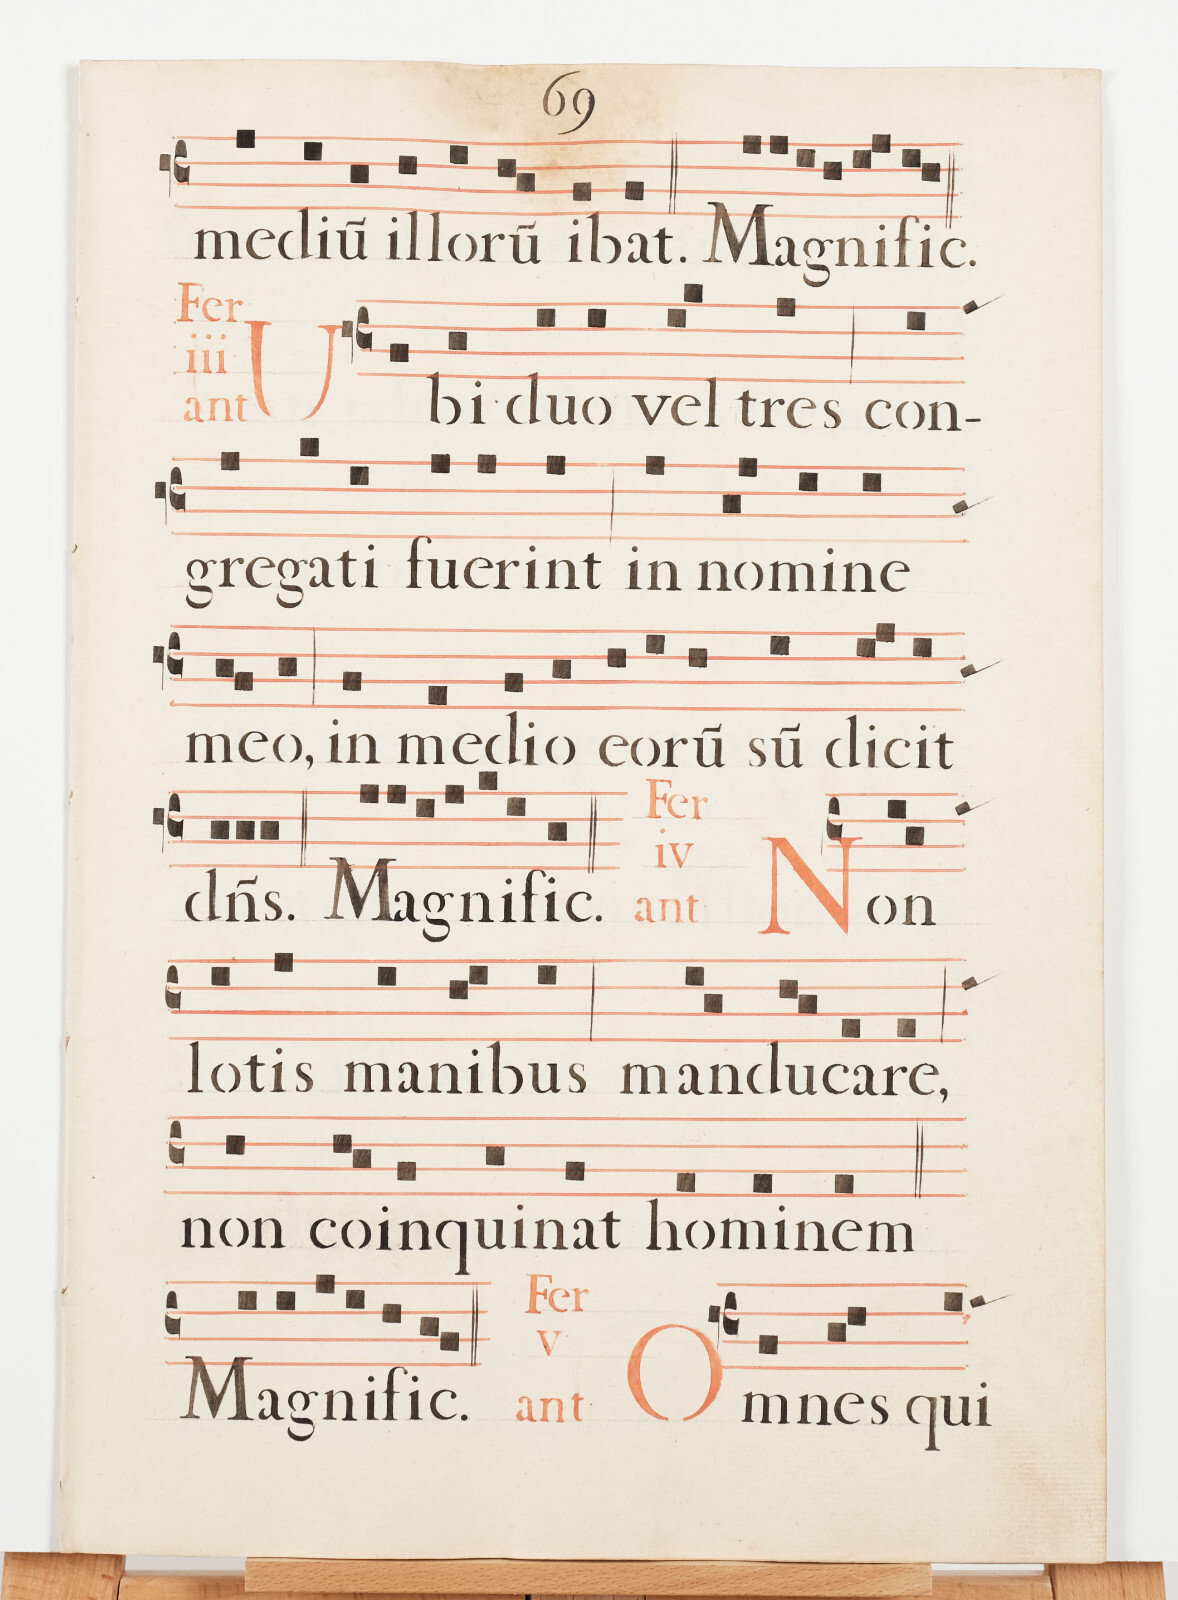 69
mediũ illorũ ibat. Magnific.
Fer
iii
ant
Ubi duo vel tres con-
gregati fuerint in nomine
meo, in medio eorũ sũ dicit
dñs. Magnific.
Fer
iv
ant
Non
lotis manibus manducare,
non coinquinat hominem
Magnific.
Fer
v
ant
Omnes qui